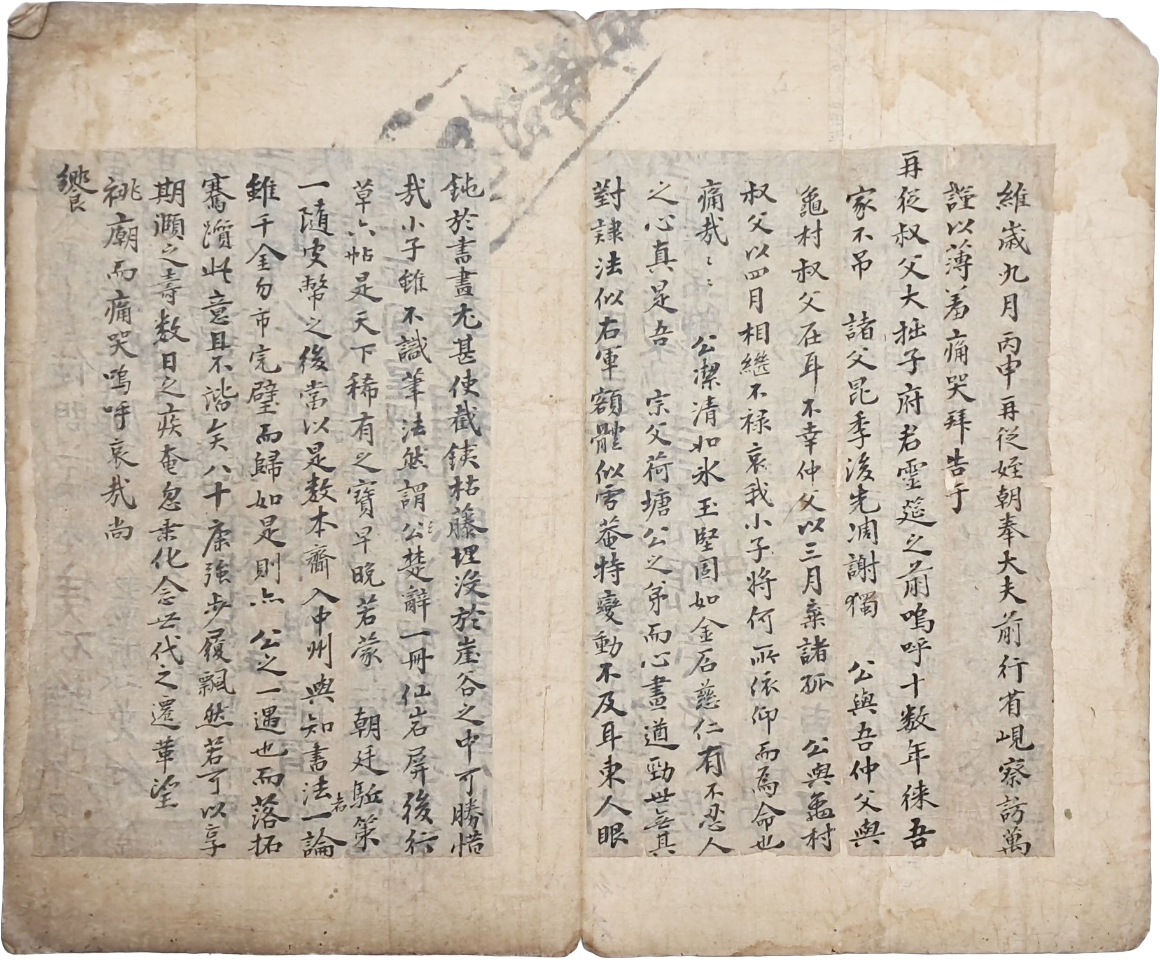 維歲九月丙申再從姪朝奉大夫前行省峴察訪萬
謹以薄羞痛哭拜告于
再從叔父大拙子府君靈筵之前嗚呼十數年徠吾
家不吊 諸父昆季後先凋謝獨 公與吾仲父與
龜村叔父在耳不幸仲父以三月棄諸孤 公與龜村
叔父以四月相繼不祿哀我小子將何所依仰而爲命也
痛哉〻〻 公潔清如氷玉堅固如金石慈仁有不忍人
之心真是吾 宗父荷塘公之弟而心畫遒勁世無其
對隷法似右軍額體似雪菴特變動不及耳東人眼
鈍於書畫尤甚使截鐵枯藤埋沒於崖谷之中可勝惜
哉小子雖不識筆法然謂公楚辭一冊仁岩屏後行
草六帖是天下稀有之寶早晚若蒙 朝廷駈策
一隨皮幣之後當以是數本齎入中州與知書法者一論
雖千金勿市完璧而歸如是則亦 公之一遇也而落拓
騫濱此意且不諧矣八十康強步履飄然若可以享
期灝之壽數日之疾奄忽乘化念世代之遷革望
祧廟而痛哭嗚呼哀哉尚
饗